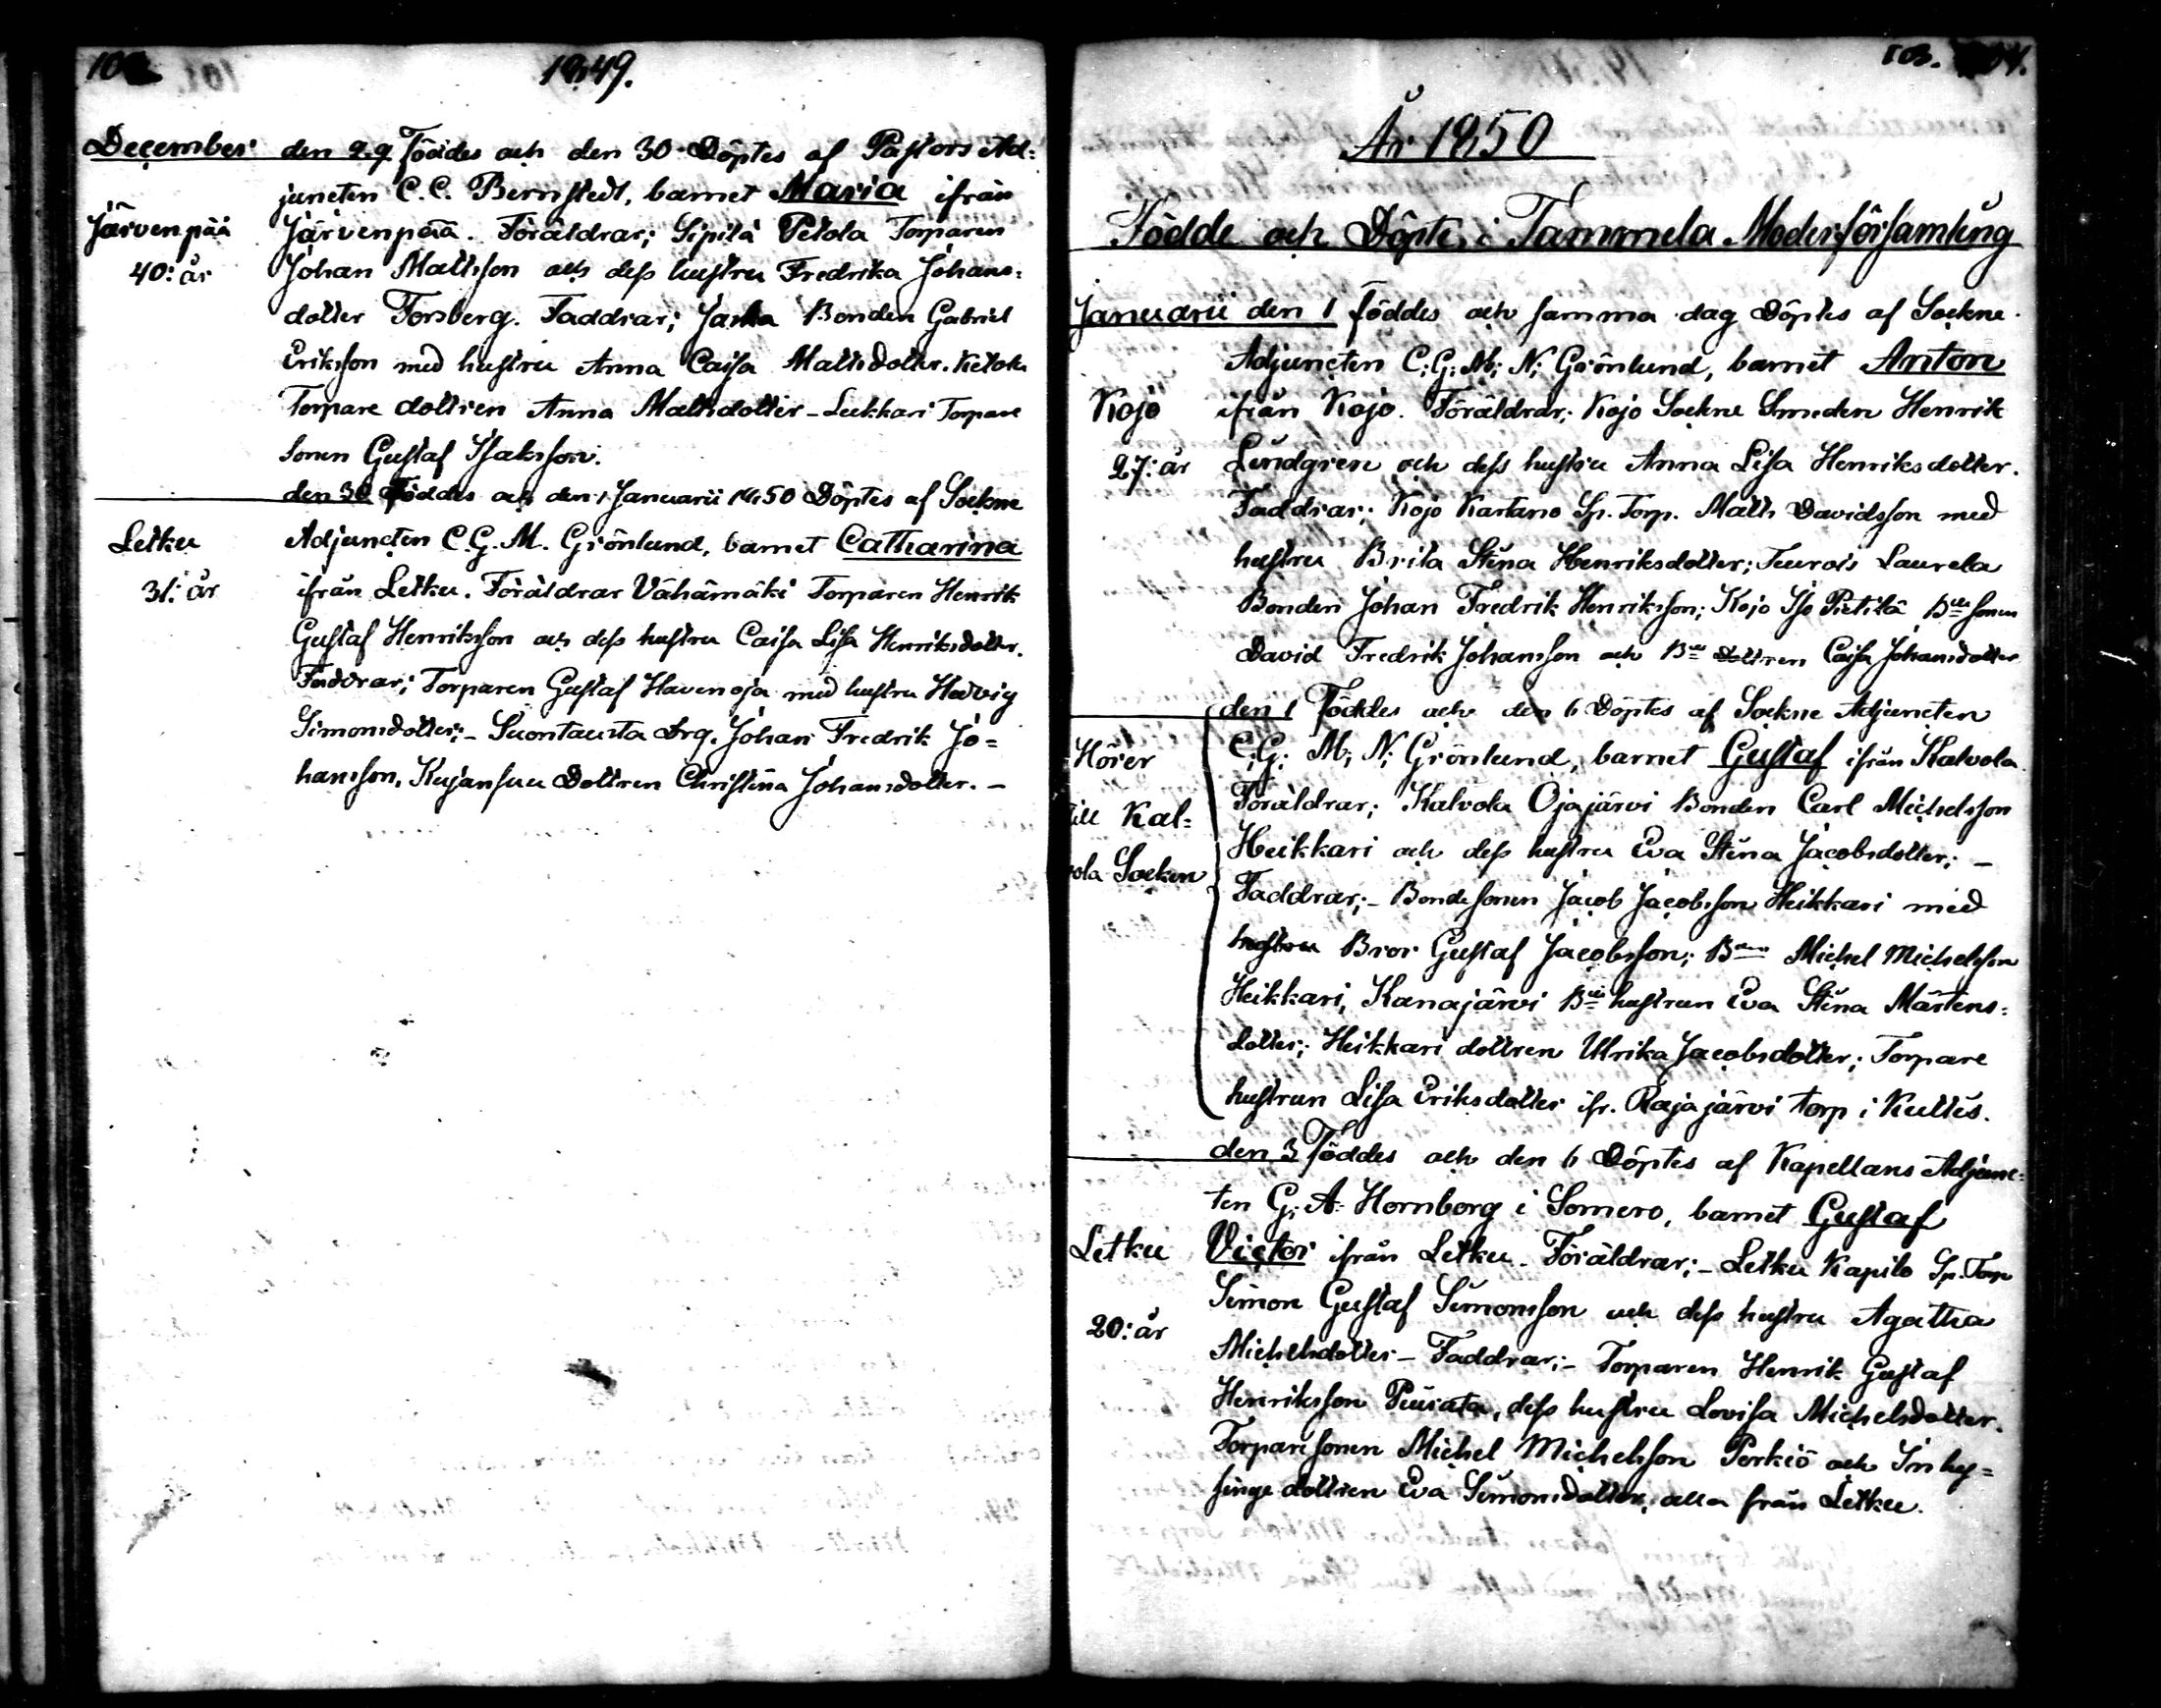 1849.
December den 29 Föddes och den 30 Döptes af Pastors Ad:
juncten C. C. Bernstedt, barnet Maria ifrån
Järvenpää Järvenpää. Föräldrar; Sipilä Petola Torparen
40: år Johan Mattsson och dess hustru Fredrika Johans:
dotter Forsberg. Faddrar; Bonden Gabriel
Eriksson med hustru Anna Caisa Mattsdotter. Ketola
Torpare dottren Anna Mattsdotter - Lukkari Torpare
sonen Gustaf Isaksson.
den 30 Föddes och den 1 Januarii 1850 Döptes af Sockne
Letku Adjuncten C. G. M. Grönlund, barnet Catharina
31: år ifrån Letku. Föräldrar Vähämäki Torparen Henrik
Gustaf Henriksson och dess hustru Caisa Lisa Henriksdotter.
Faddrar; Torparen Gustaf Havenoja med hustru Hedvig
Simonsdotter; - Suontausta Drg. Johan Fredrik Jo=
hansson, Kujansuu Dottren Christina Johansdotter. -
103.
År 1850
Födde och Döpte i Tammela Moderförsamling
Januarii den 1 föddes och samma dag Döptes af Sockne
Adjuncten C; G; M; N; Grönlund, barnet Anton
Kojo ifrån Kojo. Föräldrar; Kojo Sockne Smeden Henrik
27: år Lundgren och dess hustru Anna Lisa Henriksdotter.
Faddrar; Kojo Kartano Sp. Torp. Matts Davidsson med
hustru Brita Stina Henriksdotter; Teuro Laurela
Bonden Johan Fredrik Henriksson; Kojo Iso Pietilä Bde sonen
David Fredrik Johansson och Bde dottren Caisa Johansdotter
den 1 Föddes och den 6 Döptes af Sockne Adjuncten
Hörer C; G; M; N; Grönlund, barnet Gustaf ifrån Kalvola
till Kal= Föräldrar; Kalvola Ojajärvi Bonden Carl Michelsson
Heikkari och dess hustru Eva Stina Jacobsdotter; -
vola Socken Faddrar; - Bondesonen Jacob Jacobsson Heikkari med
hustru Bror Gustaf Jacobsson; Bden Michel Michelsson
Heikkari, Kanajärvi Bde hustrun Eva Stina Mårtens:
dotter; Heikkari dottren Ulrika Jacobsdotter; Torpare
hustrun Lisa Eriksdotter ifr. Rajajärvi torp i Kultis.
den 3 Föddes och den 6 Döptes af Kapellans Adjunc:
ten G; A: Hornborg i Somero, barnet Gustaf
Letku Victor ifrån Letku. Föräldrar; - Letku Kapilo Sp. Torp
20: år Simon Gustaf Simonsson och dess hustru Agatha
Michelsdotter - Faddrar; - Torparen Henrik Gustaf
Henriksson dess hustru Lovisa Michelsdotter.
Torparesonen Michel Michelsson Perkiö och Inhy=
singe dottren Eva Simonsdotter, alla från Letku.